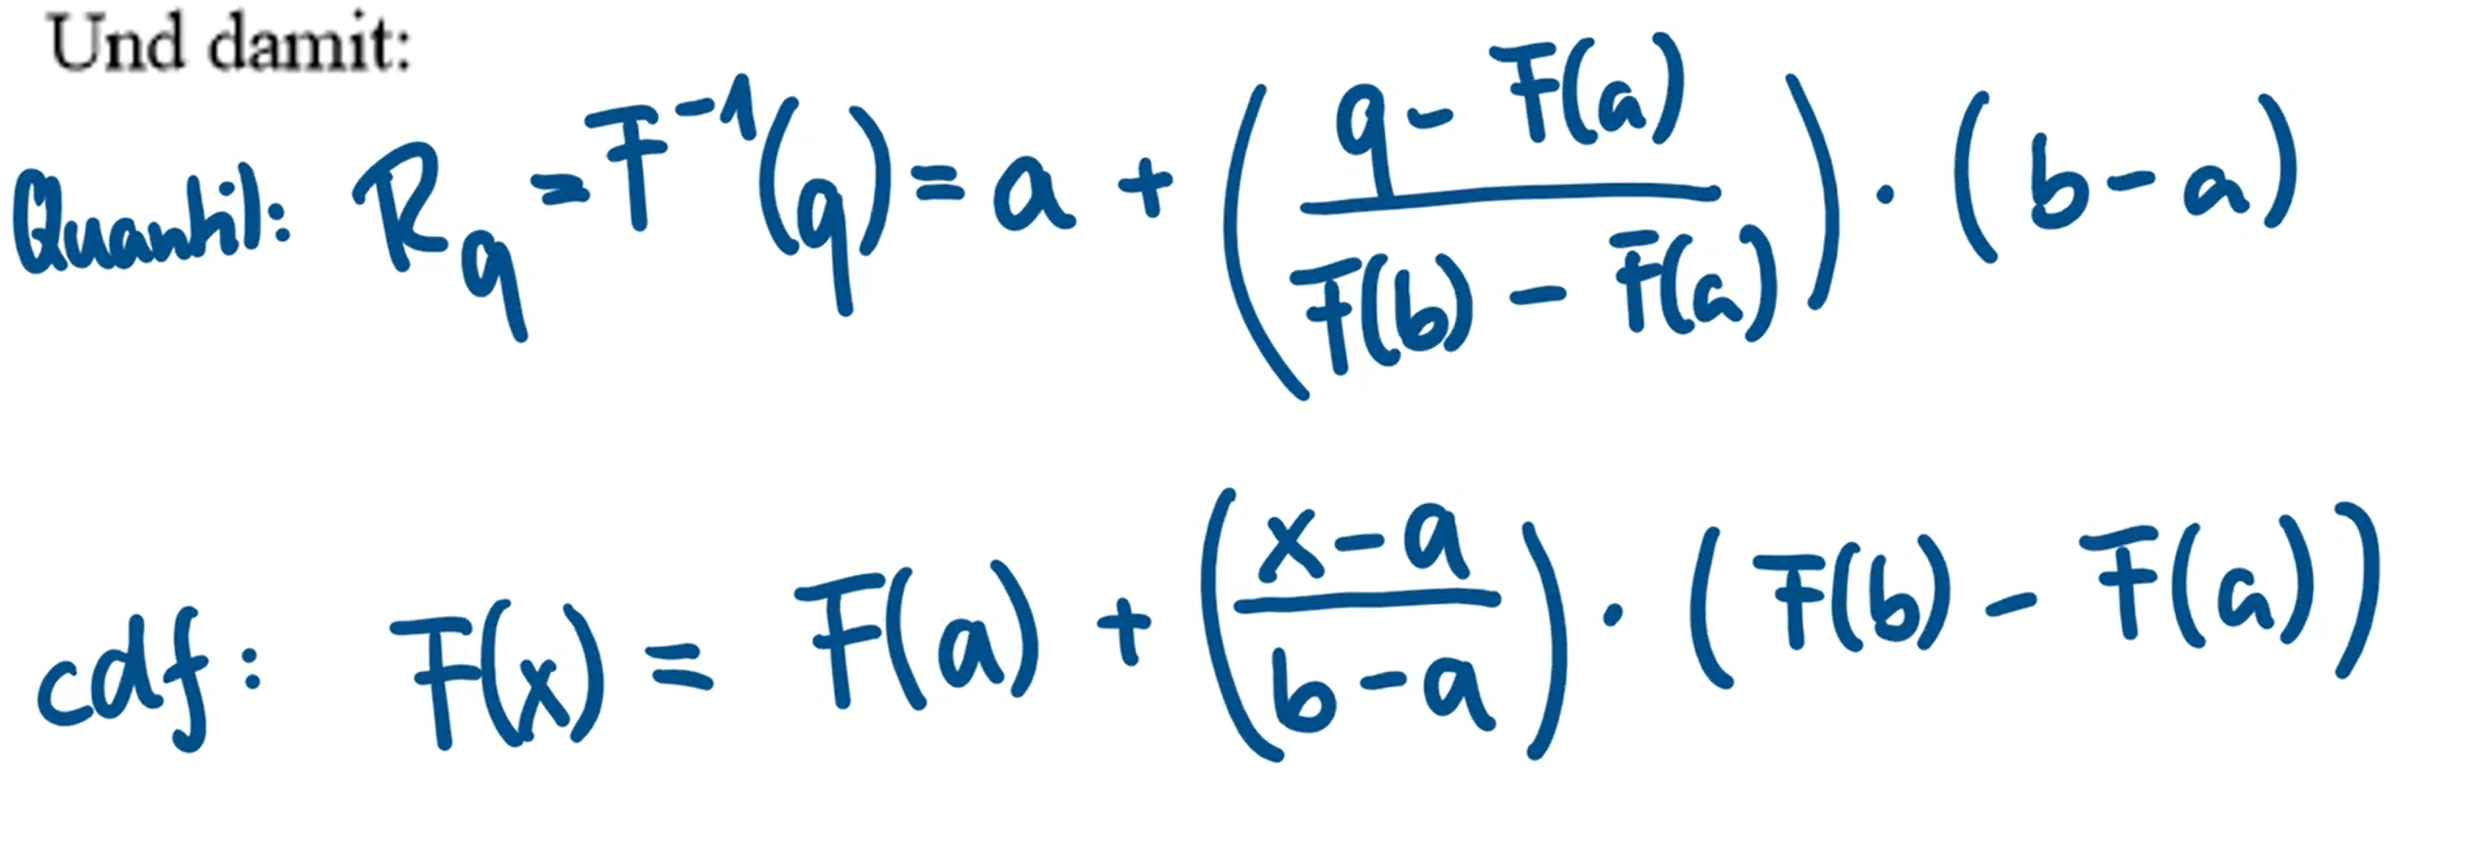 Und damit:
Quantil: R_q = F^{-1}(q) = a + ( \frac{q - F(a)}{F(b) - F(a)} ) · (b - a)
cdf: F(x) = F(a) + ( \frac{x - a}{b - a} ) · (F(b) - F(a))